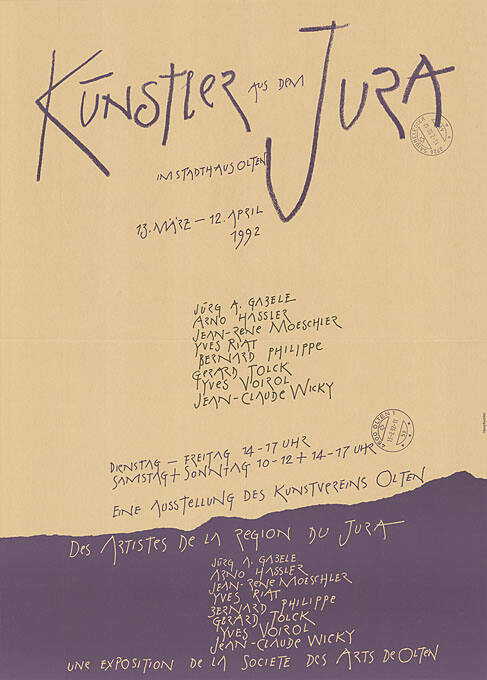 KÜNSTLER AUS DEM JURA
IM STADTHAUS OLTEN
13. MÄRZ – 12. APRIL
1992
JÜRG A. GABELE
ARNO HASSLER
JEAN-RENE MOESCHLER
YVES RIAT
BERNARD PHILIPPE
GERARD TOLCK
YVES VOIROL
JEAN-CLAUDE WICKY
4600 OLTEN 1
DIENSTAG – FREITAG 14-17 UHR
SAMSTAG + SONNTAG 10-12 + 14-17 UHR
EINE AUSSTELLUNG DES KUNSTVEREINS OLTEN
DES ARTISTES DE LA REGION DU JURA
JÜRG A. GABELE
ARNO HASSLER
JEAN-RENE MOESCHLER
YVES RIAT
BERNARD PHILIPPE
GERARD TOLCK
YVES VOIROL
JEAN-CLAUDE WICKY
UNE EXPOSITION DE LA SOCIETE DES ARTS DE OLTEN